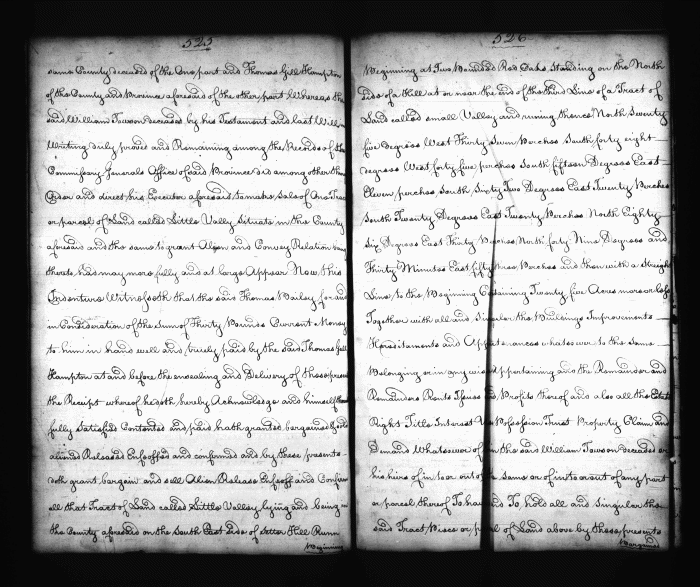 525
same County deceased of the One part and Thomas Gill Hampton
of the County and Province aforesaid of the other part Whereas the
said William Towson deceased by his Testament and last Will in
Writing duly proved and Remaining among the Records of the
Commissary Generals Office of said Province did among other things
Order and direct his Executor aforesaid to make Sale of One Tract
or parcel of Land called Little Valley Situate in the County
aforesaid and the same to grant Alien and Convey Relation being
thereto had may more fully and at large Appear Now this
Indenture Witnesseth that the said Thomas Bailey for and
in Consideration of the Sum of Thirty Pounds Current Money
to him in hand well and truely paid by the said Thomas Gill
Hampton at and before the ensealing and Delivery of these presents
the Receipt whereof he doth hereby Acknowledge and himself
fully Satisfied Contented and paid hath granted bargained Sold
aliened Released Enfeoffed and confirmed and by these presents
doth grant bargain and sell Alien Release Enfeoff and Confirm
all that Tract of Land called Little Valley lying and being in
the County aforesaid on the South East Side of Setter Hill Runn
Beginning
526
Beginning at Two Bounded Red Oaks Standing on the North
Side of a Hill at or near the end of the third Line of a Tract of
Land called small Valley and runing thence North Seventy
five Degrees West Thirty Seven Perches South forty eight
degrees West forty five perches South fifteen Degrees East
Eleven perches South Sixty Two Degrees East Twenty Perches
South Twenty Degrees East Twenty Perches North Eighty
Six Degrees East Thirty Perches North forty Nine Degrees and
Thirty Minutes East fifty Perches and then with a Streight
Line to the Beginning Containing Twenty five Acres more or less
Together with all and Singular the Buildings Improvements
Hereditaments and Appurtenances whatsoever to the same
Belonging or in any wise appertaining and the Remainder and
Remainders Rents Issues and Profits thereof and also all the Estate
Right Title Interest Use Possession Trust Property Claim and
Demand Whatsoever of him the said William Towson deceased or
his heirs of in to or out of the same or of in to or out of any part
or parcel thereof To have and To hold all and Singular the
said Tract Piece or parcel of Land above by these presents
Bargained